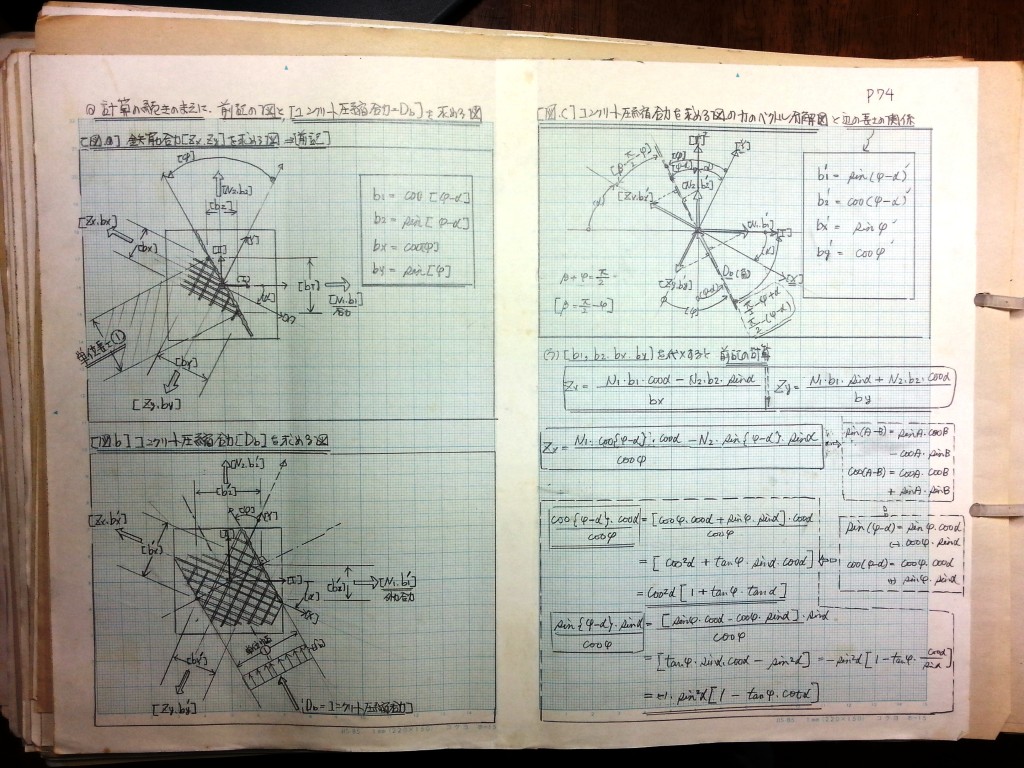 ◎計算の続きのまえに、前記の図と、[コンクリート圧縮合力=Db]を求める図
[図.a] 鉄筋合力[Zx.Zy]を求める図 ⇒[前記]
[φ]
[N2.b2]
[b2]
[Zx.bx]
[bx]
[α]
[b1]
[N1.b1]
合力
単位長さ①
[by]
[Zy.by]
b1 = cos[φ-α]
b2 = sin[φ-α]
bx = cos[φ]
by = sin[φ]
[図b] コンクリート圧縮合力[Db]を求める図
[N2.b2']
[b2']
[φ]
[Zx.bx']
[bx']
[b1']
[N1.b1']
外力合力
[α]
[by']
[Zy.by']
[Db=コンクリート圧縮合力]
P74
[図.C] コンクリート圧縮合力を求める図の力のベクトル分解図と辺の長さの関係
[β=π/2-φ]
[Zx.bx']
[φ-α]
[N2.b2']
[N1.b1']
[α]
[Zy.by']
[φ]
π/2-φ+α
π/2-(φ-α)
β+φ=π/2
[β=π/2-φ]
b1' = sin(φ-α)
b2' = cos(φ-α)
bx' = sinφ
by' = cosφ
(ウ) [b1, b2. bx. by]を代入すると 前記の計算
Zx = N1・b1・cosα - N2・b2・sinα / bx
Zy = N1・b1・sinα + N2・b2・cosα / by
Zx = N1・cos{φ-α}・cosα - N2・sin{φ-α}・sinα / cosφ
sin(A-B) = sinA・cosB
- cosA・sinB
cos(A-B) = cosA・cosB
+ sinA・sinB
sin(φ-α) = sinφ・cosα
(-) cosφ・sinα
cos(φ-α) = cosφ・cosα
(+) sinφ・sinα
cos{φ-α}・cosα / cosφ = [cosφ・cosα + sinφ・sinα]・cosα / cosφ
= [cos²α + tanφ・sinα・cosα]
= cos²α[1 + tanφ・tanα]
sin{φ-α}・sinα / cosφ = [sinφ・cosα - cosφ・sinα]・sinα / cosφ
= [tanφ・sinα・cosα - sin²α] = -sin²α[1 - tanφ・cosα/sinα]
= (-)・sin²α[1 - tanφ・cotα]